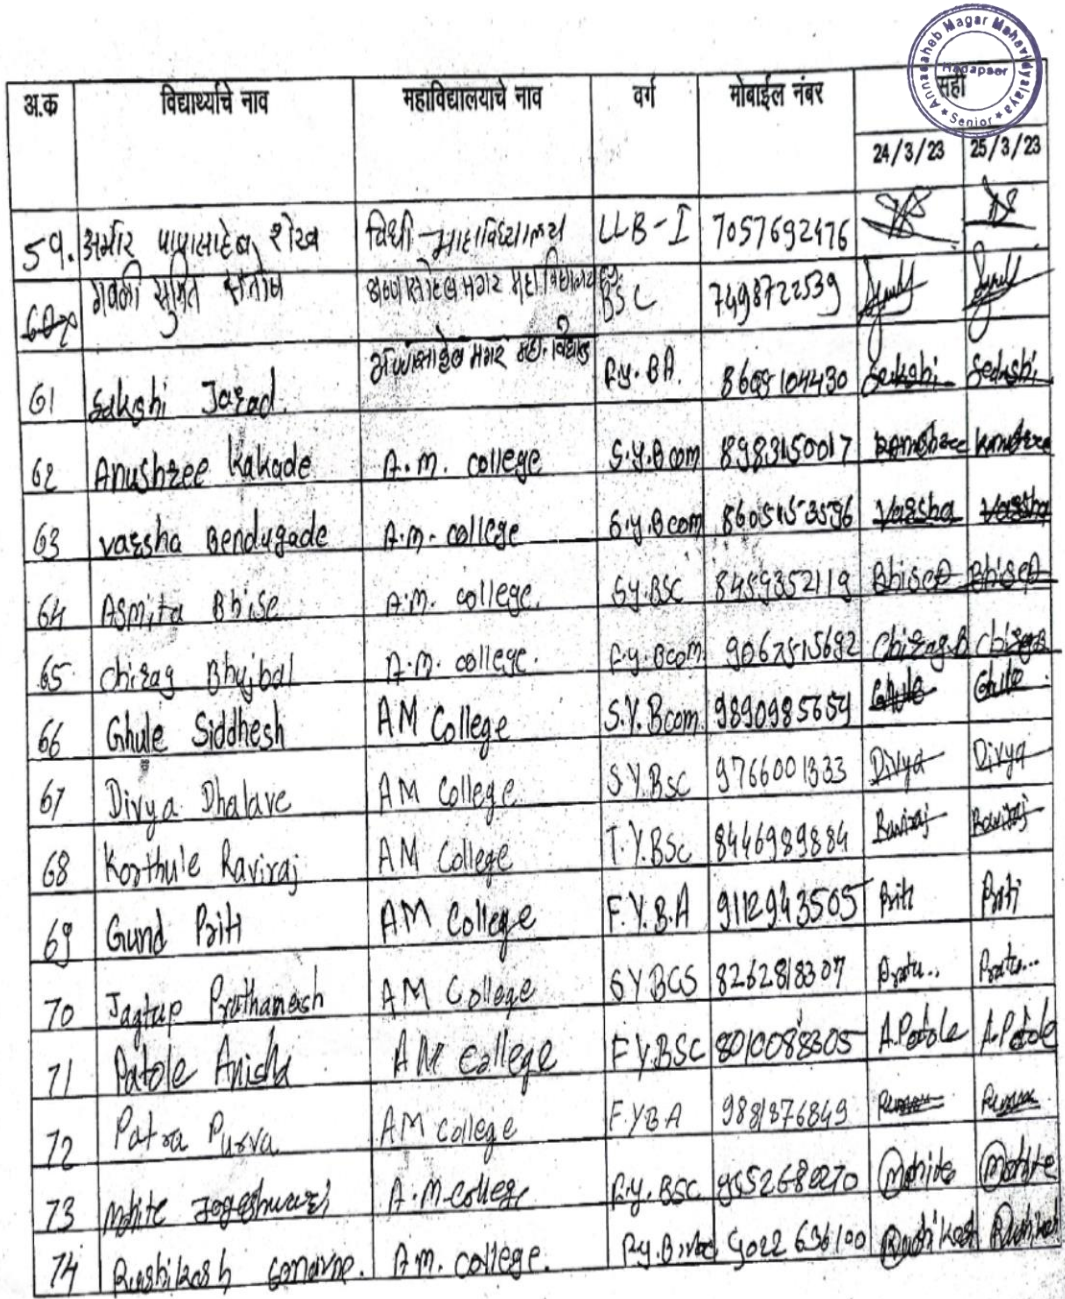 Annasaheb Magar Mahavidyalaya
Hadapsar
Senior
अ.क विद्यार्थ्याचे नाव महाविद्यालयाचे नाव वर्ग मोबाईल नंबर सही
24/3/23 25/3/23
59. शेख विधी LLB-I 7057692476
गवळी सुमित संतोष मगर BSC 7498722539
61 Sakshi Jagad. मगर महा. F.y. BA. Sakshi Sakshi
62 Anushree Kakade A.m. college S.y.Bcom 8983150017
63 varsha Bendugade A.m. college S.y.Bcom Varsha Varsha
64 Asmita Bhise A.m. college. Sy.BSC 8459352119
65 Chirag Bhujbal A.m. college. F.y. Bcom Chirag.B Chirag.B
66 Ghule Siddhesh AM College S.Y.Bcom. 9890985654 Ghule Ghule
67 Divya Dhalave AM College S.Y.Bsc 9766001333 Divya Divya
68 Korthule Raviraj AM College T.Y.BSc 8446989884 Raviraj Raviraj
69 Gund Priti AM College F.Y.B.A 9112943505 Priti Priti
70 Jagtap Prathamesh AM College SYBCS 8262818307 Pratu.. Pratu...
71 Patole Anisha AM College F.Y.BSC A.Patole A.Patole
72 Patra Purva AM College F.YBA 9881376849
73 Mohite A.m.college F.y. BSC Mohite Mohite
74 Rushikesh A.m. college. Rushikesh Rushikesh